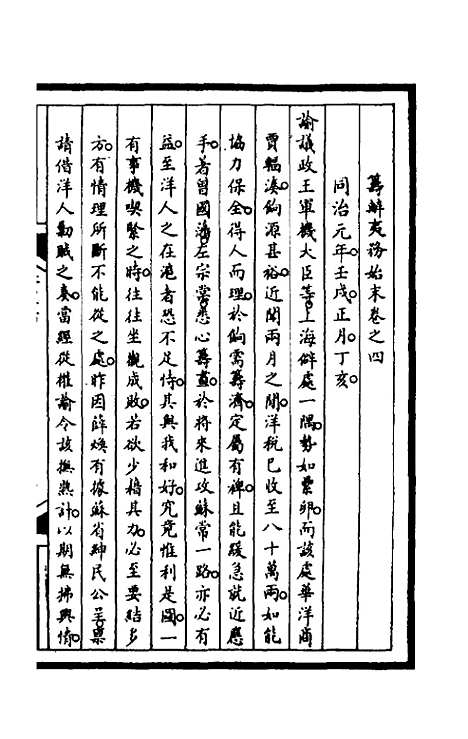 籌辦夷務始末卷之四
同治元年壬戌正月丁亥。
諭議政王軍機大臣等。上海僻處一隅。勢如累卵。而該處華洋商
賈輻湊。餉源甚裕。近聞兩月之間。洋稅已收至八十萬兩。如能
協力保全。得人而理。於餉需籌濟。定屬有裨。且能緩急就近應
手。著曾國藩左宗棠。悉心籌畫。於將來進攻蘇常一路。亦必有
益。至洋人之在滬者。恐不足恃。其與我和好。究竟惟利是圖。一
有事機喫緊之時。往往坐觀成敗。若欲少藉其力。必至要結多
方。有情理所斷不能從之處。昨因薛煥有據蘇省紳民公呈。稟
請借洋人勦賊之奏。當經從權諭令該撫熟計。以期無拂輿情。